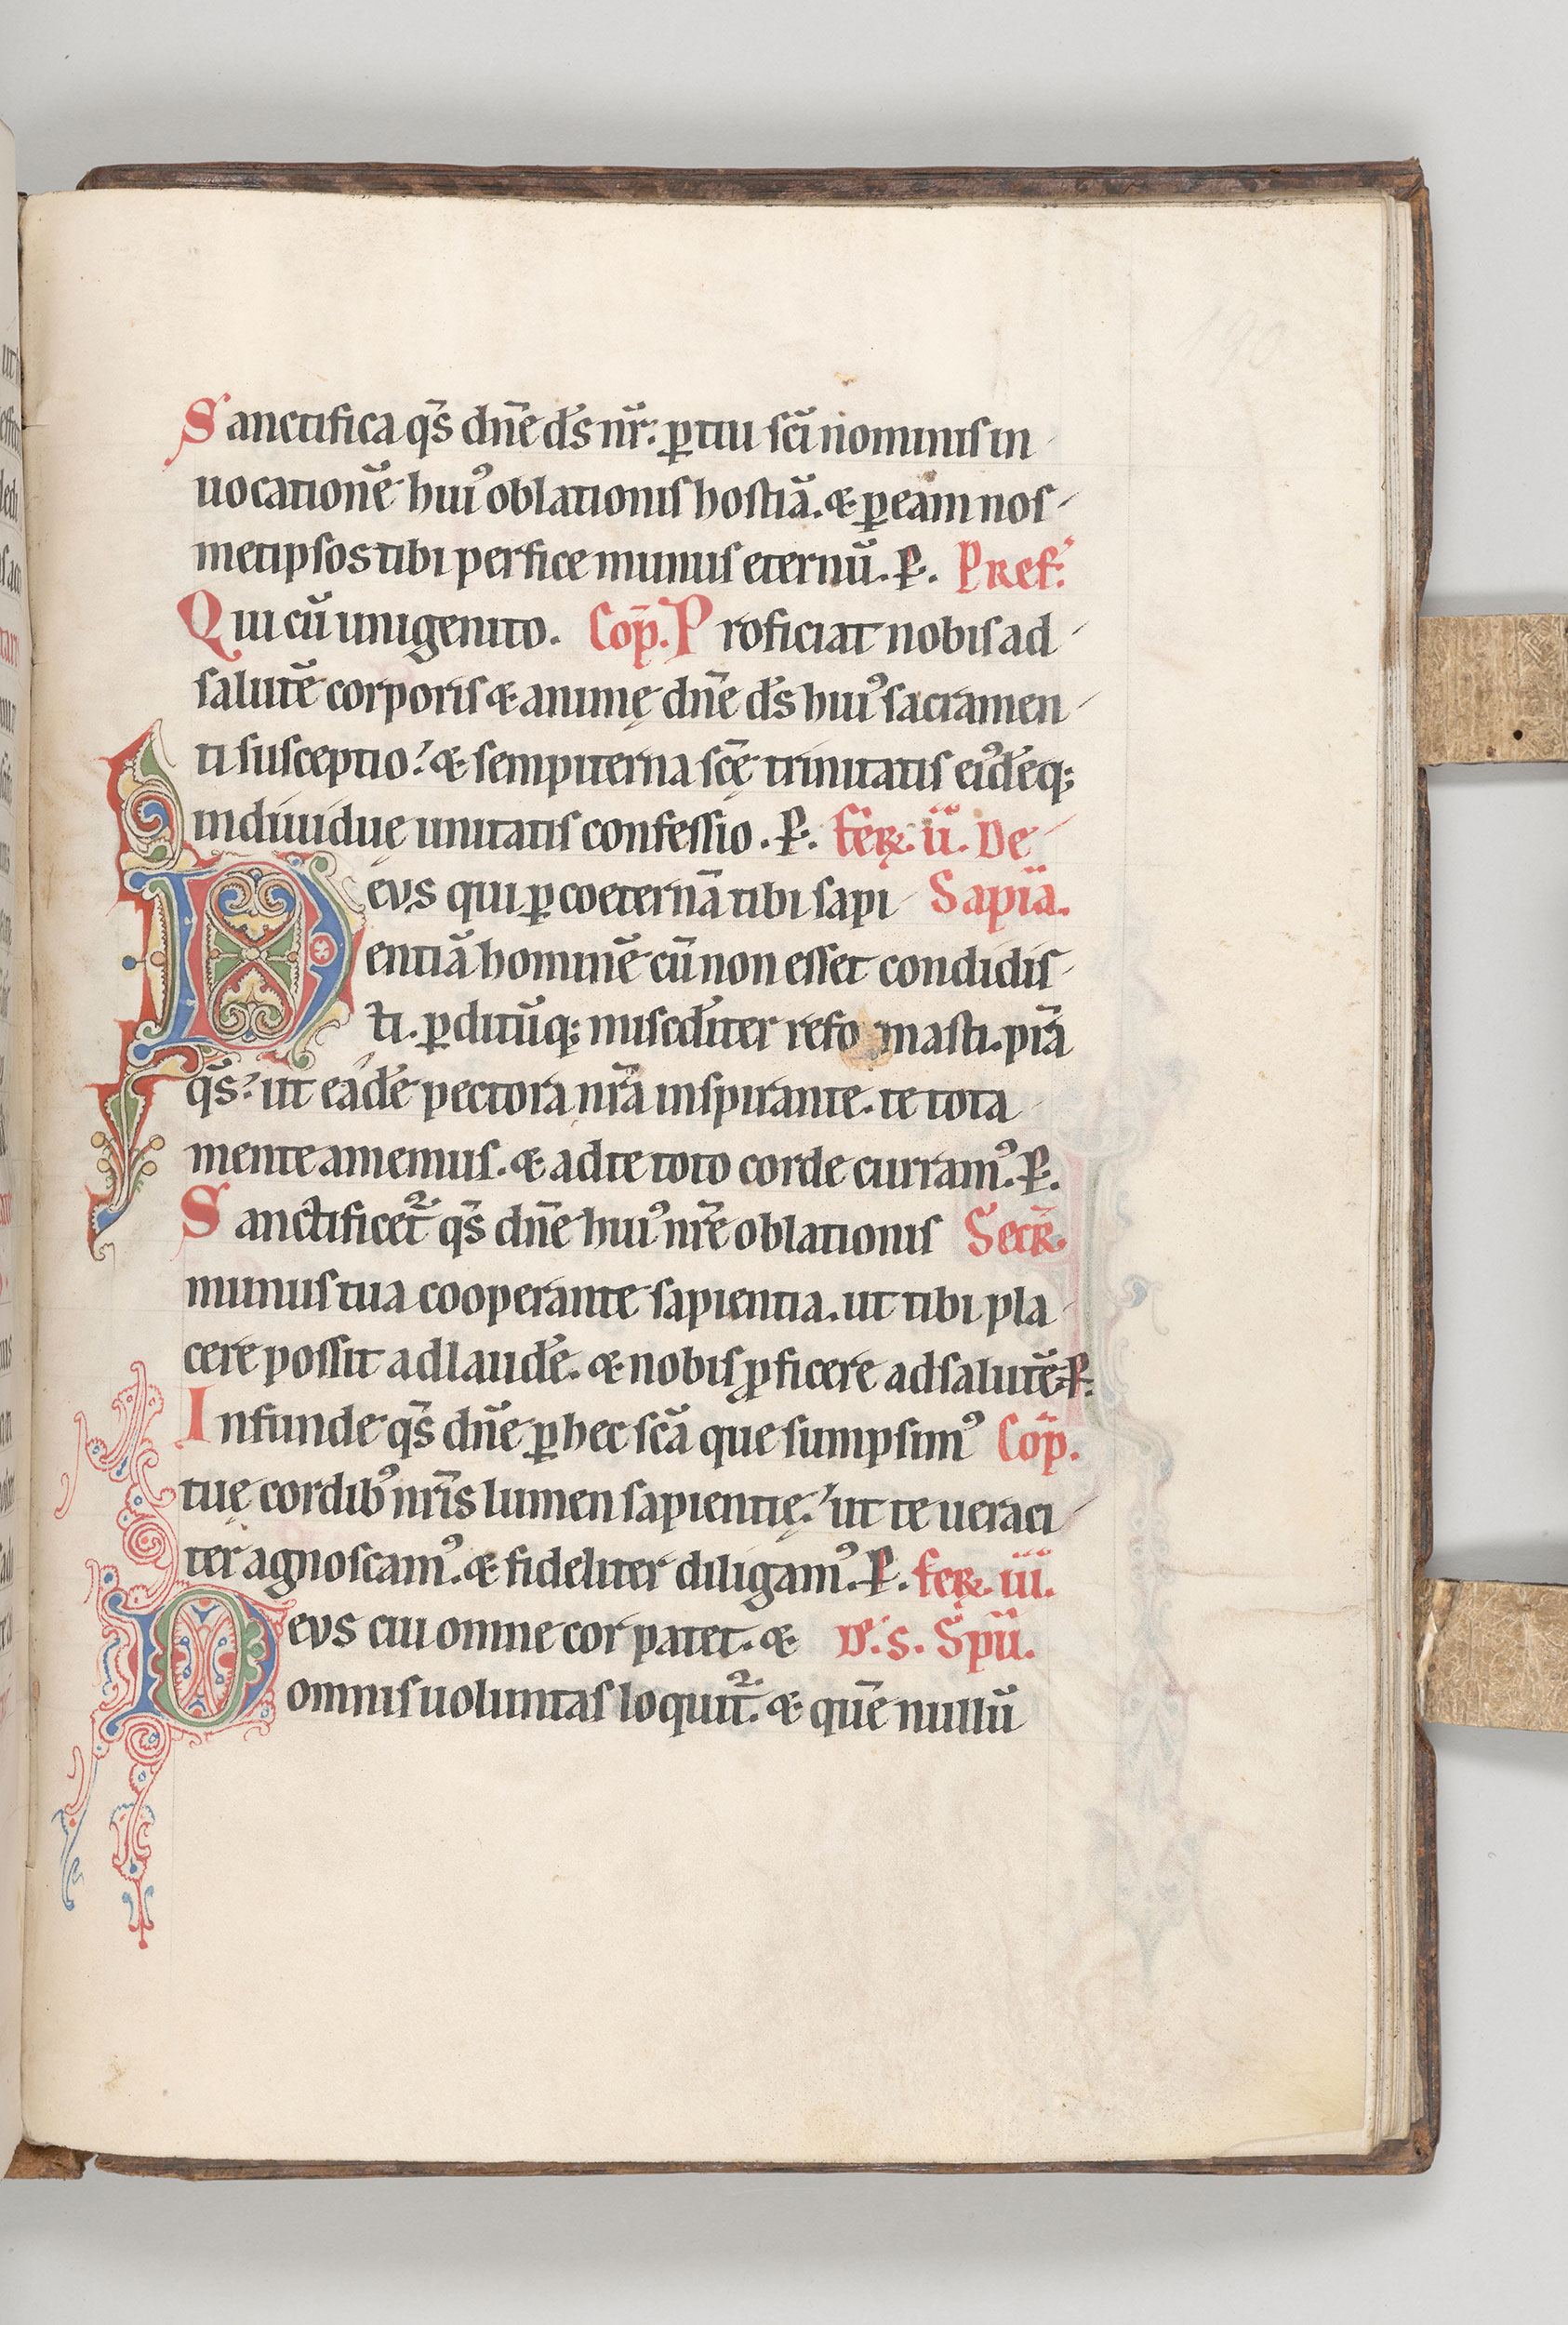 Sanctifica qs̄ dn̄e ds̄ nr̄: ꝑ tui sc̄i nominis in
uocationē hui᾽ oblationis hostiā. & ꝑ eam nos
metipsos tibi perfice munus eternū. P. Pref.
Qui cū unigenito. Cōp. Proficiat nobis ad
salutē corporis & animę dn̄e ds̄ hui᾽ sacramen
ti susceptio? & sempiterna sc̄ę trinitatis ei᾽deq;
indiuiduę unitatis confessio. P. feR. ii. De
eus qui ꝑ coeternā tibi sapi Sapīa.
entiā hominē cū non esset condidis
ti. ꝑditūq; misćditer refo masti. pr̄a
qs̄? ut eādē pectora nr̄a inspirante. te tota
mente amemus. & ad te toto corde curram᾽. P.
Sanctificet᷑ qs̄ dn̄e hui᾽ nr̄e oblationis SecR̄.
munus tua cooperante sapientia. ut tibi pla
cere possit ad laudē. & nobis ꝓficere ad salutē. P.
Infunde qs̄ dn̄e ꝑ hec sc̄a que sumpsim᾽ Cōp.
tuę cordib᾽ nr̄is lumen sapientię? ut te ueraci
ter agnoscam᾽. & fideliter diligam᾽. P. feR. iii.
Deus cui omne cor patet. & D̄. s. Spū.
omnis uoluntas loquit᷑. & quē nullū
190